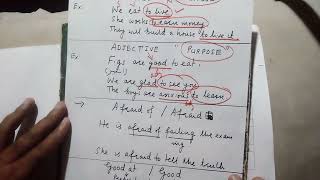 Ex: We eat to live.
She works to earn money
They will build a house to live it
ADJECTIVE "PURPOSE"
Ex: Figs are good to eat.
We are glad to see you
The boys are anxious to learn
→ Afraid of / Afraid
He is afraid of failing the exam
ing
She is afraid to tell the truth
Good at / Good